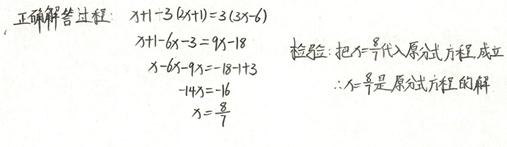 正确解答过程: x+1-3(2x+1)=3(3x-6)
x+1-6x-3=9x-18
x-6x-9x=-18-1+3
-14x=-16
x=8/7
检验:把x=8/7代入原分式方程,成立
∴x=8/7是原分式方程的解